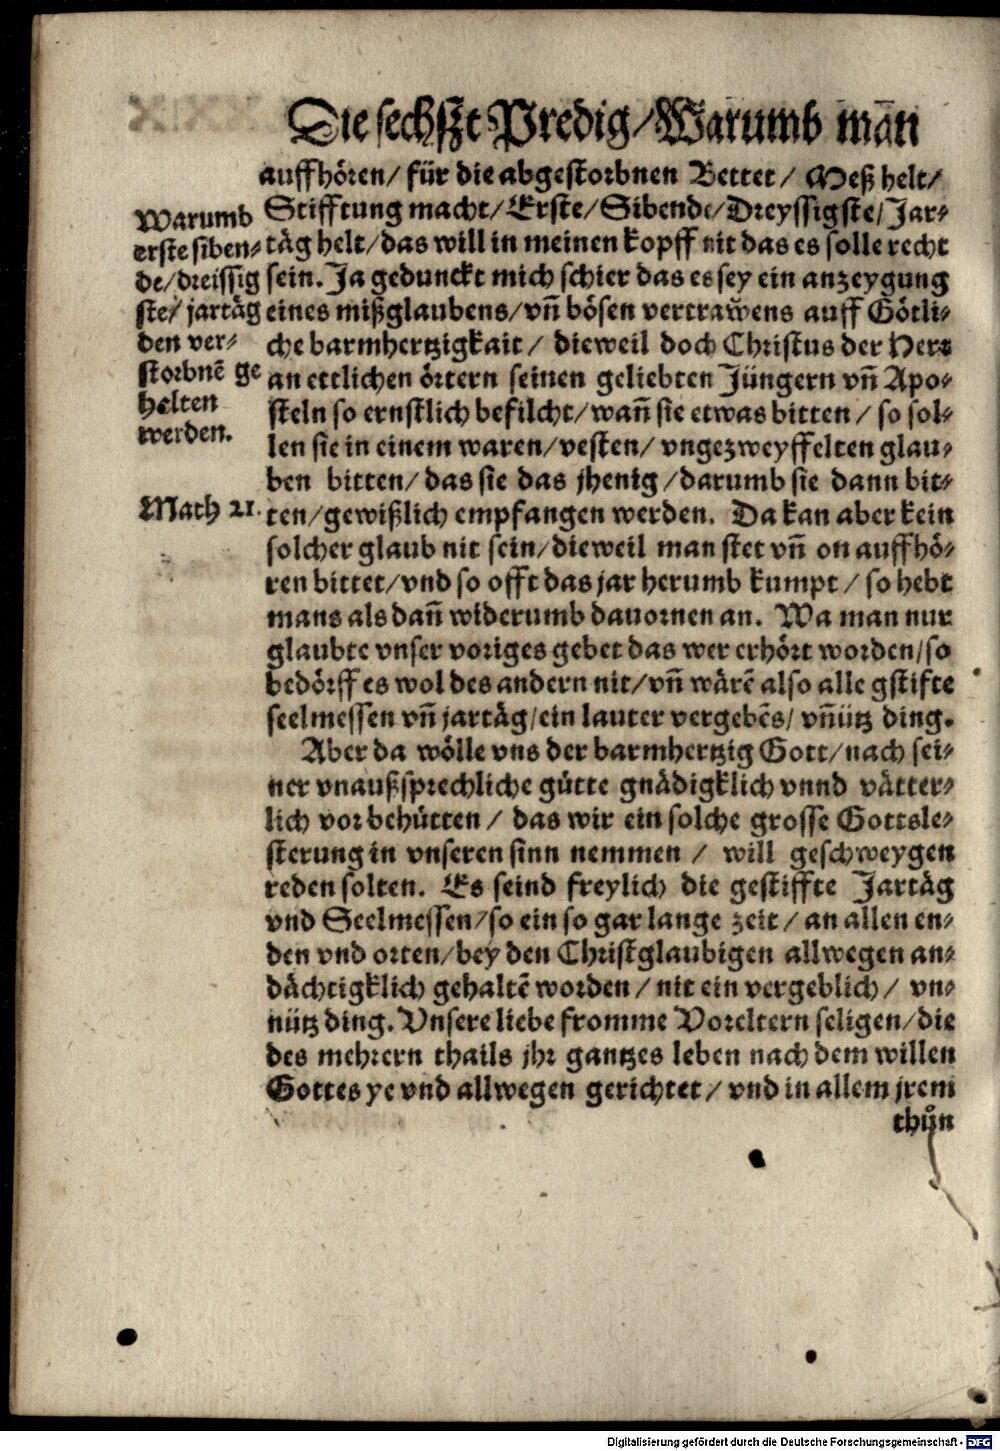 Die sechßt Predig/Warumb man
auffhören/ für die abgestorbnen Bettet/ Meß helt/
Stifftung macht/Erste/Sibende/Dreyssigste/Jar-
täg helt/das will in meinen kopff nit das es solle recht
sein. Ja gedunckt mich schier das es sey ein anzeygung
eines mißglaubens/vñ bösen vertraẅens auff Götli-
che barmhertzigkait/ dieweil doch Christus der Herr
an ettlichen örtern seinen geliebten Jüngern vñ Apo-
steln so ernstlich befilcht/wañ sie etwas bitten/ so sol-
len sie in einem waren/vesten/ vngezweyffelten glau-
ben bitten/das sie das jhenig/darumb sie dann bit-
ten/gewißlich empfangen werden. Da kan aber kein
solcher glaub nit sein/dieweil man stet vñ on auffhö-
ren bittet/vnd so offt das jar herumb kumpt/ so hebt
mans als dañ widerumb dauornen an. Wa man nur
glaubte vnser voriges gebet das wer erhört worden/so
bedörff es wol des andern nit/vñ wärẽ also alle gstifte
seelmessen vñ jartäg/ein lauter vergebẽs/ vñütz ding.
Aber da wölle vns der barmhertzig Gott/nach sei-
ner vnaußsprechliche gütte gnädigklich vnnd vätter-
lich vor behütten/ das wir ein solche grosse Gottsle-
sterung in vnseren sinn nemmen/ will geschweygen
reden solten. Es seind freylich die gestiffte Jartäg
vnd Seelmessen/so ein so gar lange zeit/ an allen en-
den vnd orten/bey den Christglaubigen allwegen an-
dächtigklich gehaltẽ worden/ nit ein vergeblich/ vn-
nütz ding. Vnsere liebe fromme Voreltern seligen/die
des mehrern thails jhr gantzes leben nach dem willen
Gottes ye vnd allwegen gerichtet/ vnd in allem jrem
thůn
Warumb
erste siben-
de/dreissig
ste/ jartäg
den ver-
storbnẽ ge
helten
werden.
Math 21.
Digitalisierung gefördert durch die Deutsche Forschungsgemeinschaft - DFG